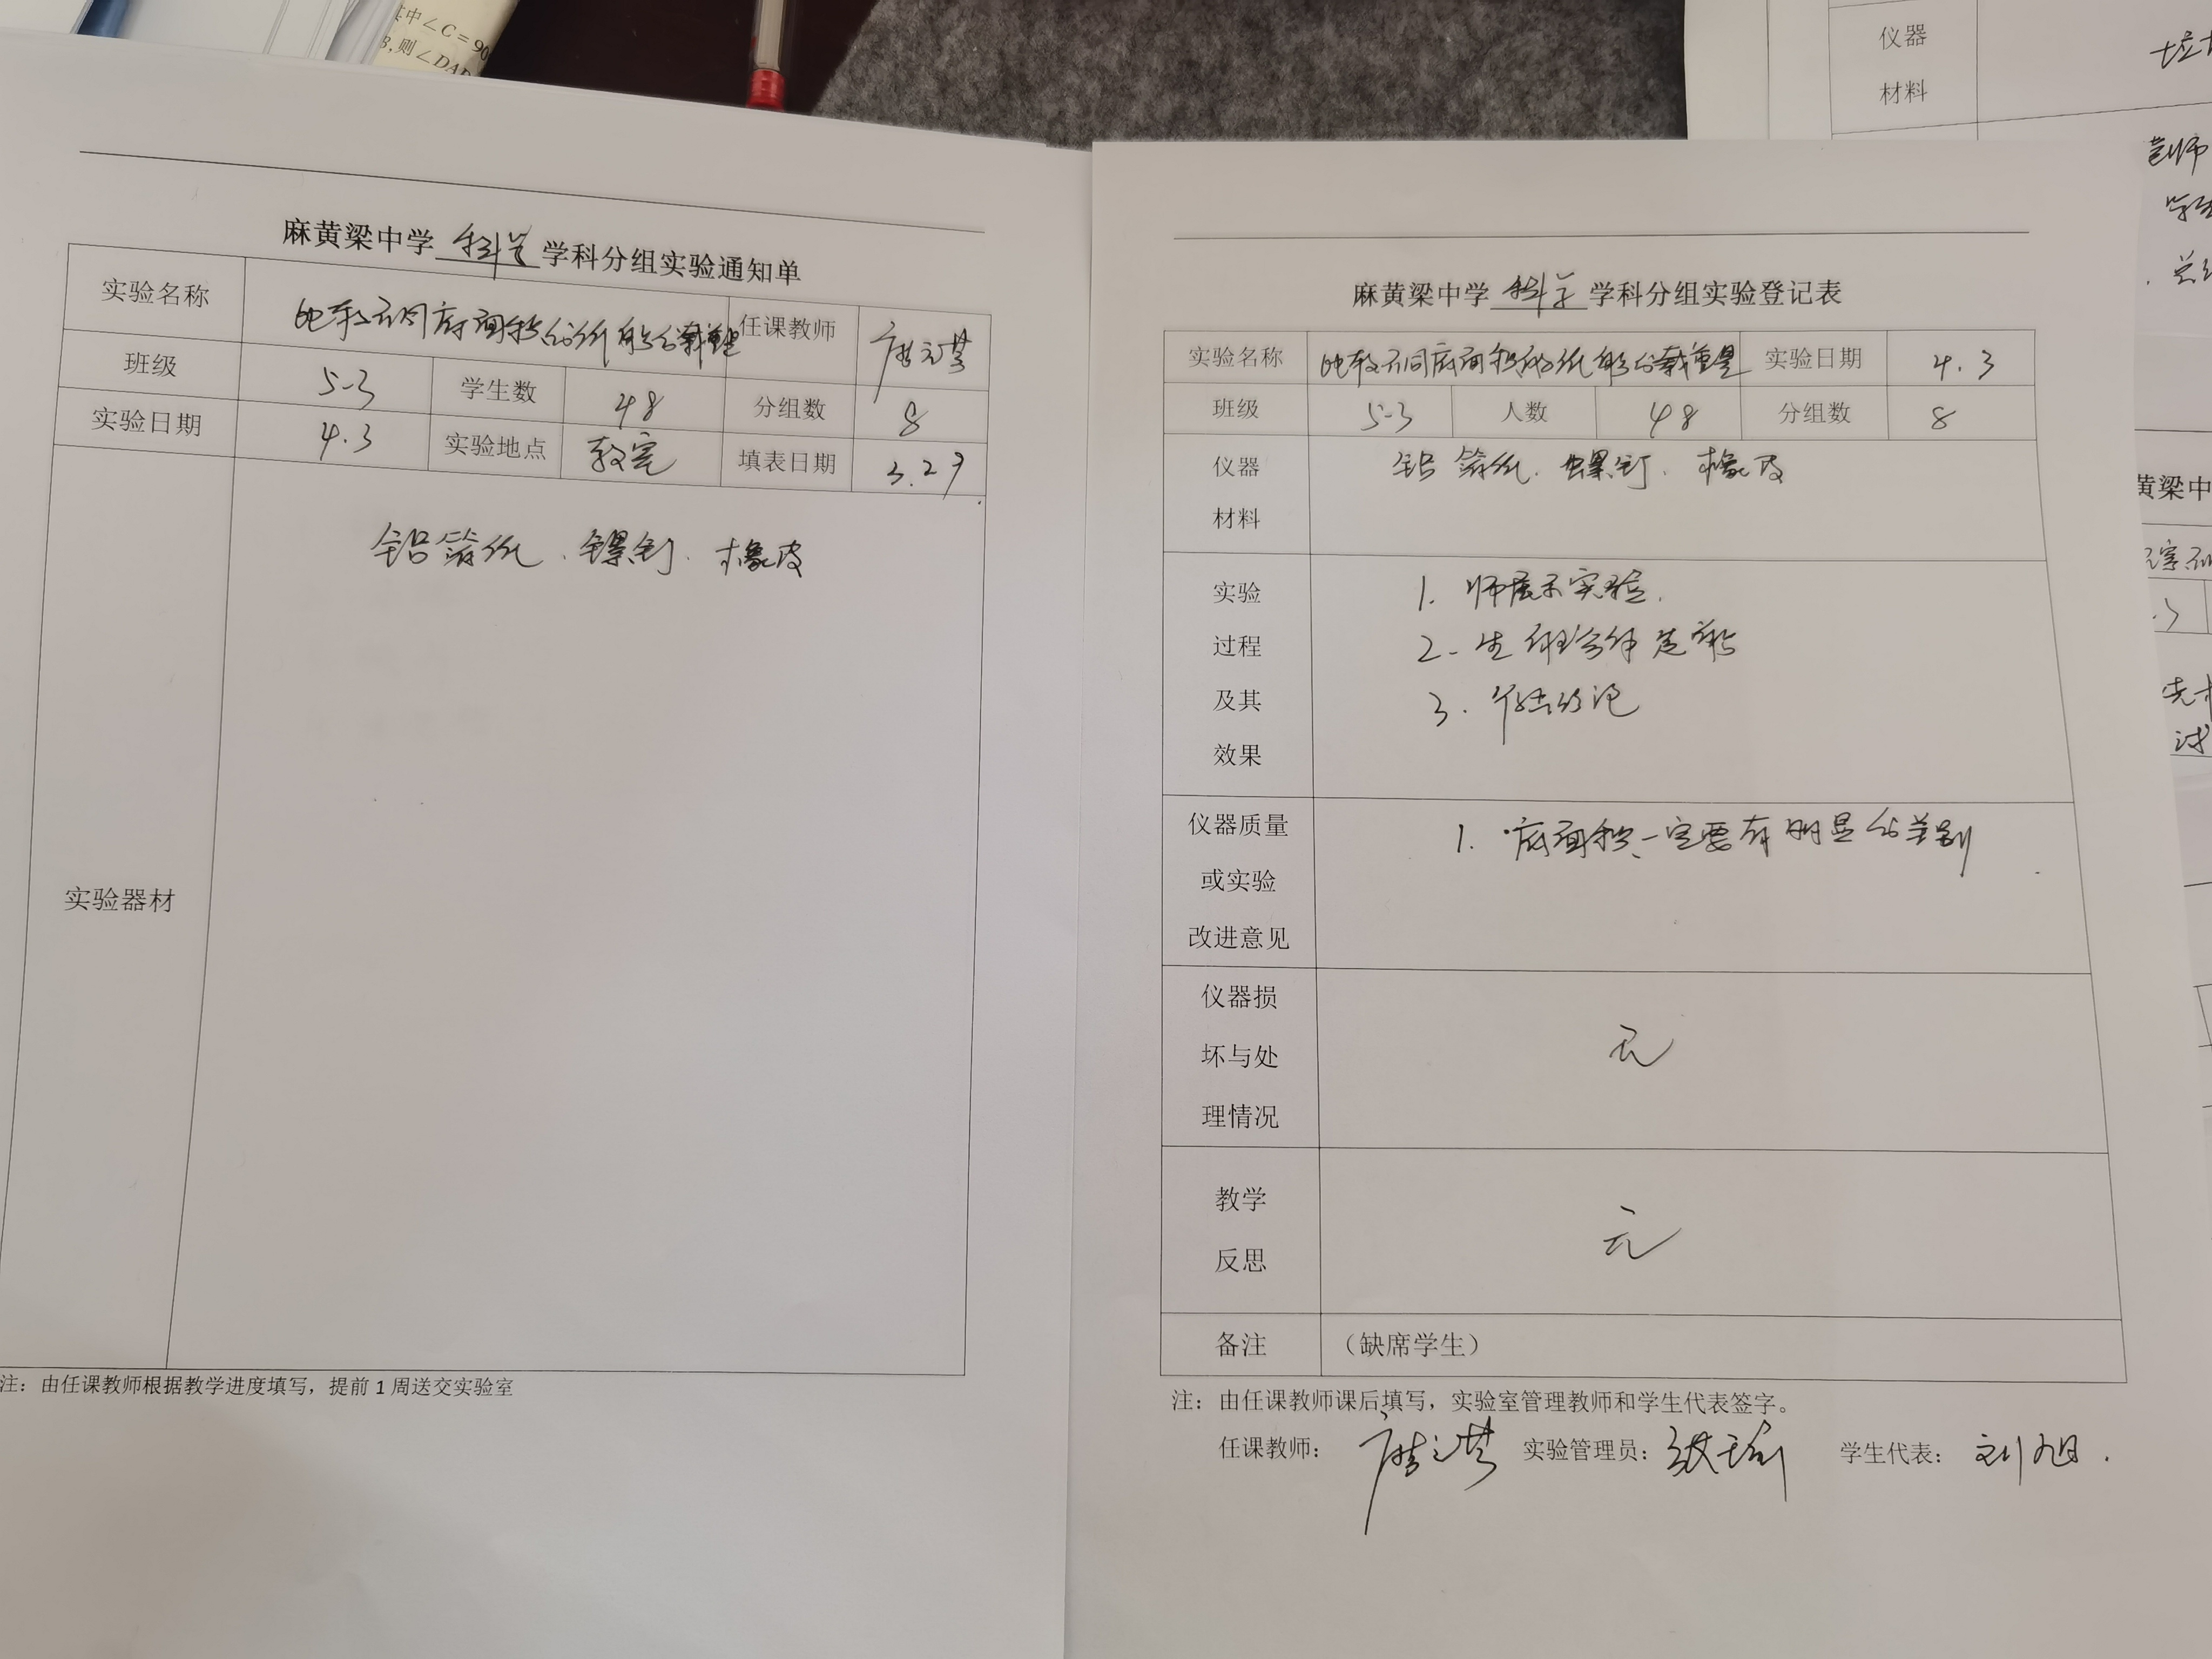 其中∠C=90
3,则∠DAB
麻黄梁中学 科学 学科分组实验通知单
实验名称 比较不同底面积的纸船的载重量 任课教师
班级 5-3 学生数 48 分组数 8
实验日期 4.3 实验地点 教室 填表日期 3.27
实验器材 铝箔纸、螺钉、橡皮
注：由任课教师根据教学进度填写，提前 1 周送交实验室
麻黄梁中学 科学 学科分组实验登记表
实验名称 比较不同底面积的纸船的载重量 实验日期 4.3
班级 5-3 人数 48 分组数 8
仪器
材料
铝箔纸、螺钉、橡皮
实验
过程
及其
效果
1. 师展示实验.
2. 生合作
3.
仪器质量
或实验
改进意见
1. 底面积一定要有明显的差别
仪器损
坏与处
理情况
无
教学
反思
无
备注 （缺席学生）
注：由任课教师课后填写，实验室管理教师和学生代表签字。
任课教师： 实验管理员： 学生代表：刘旭.
仪器
材料
黄梁中